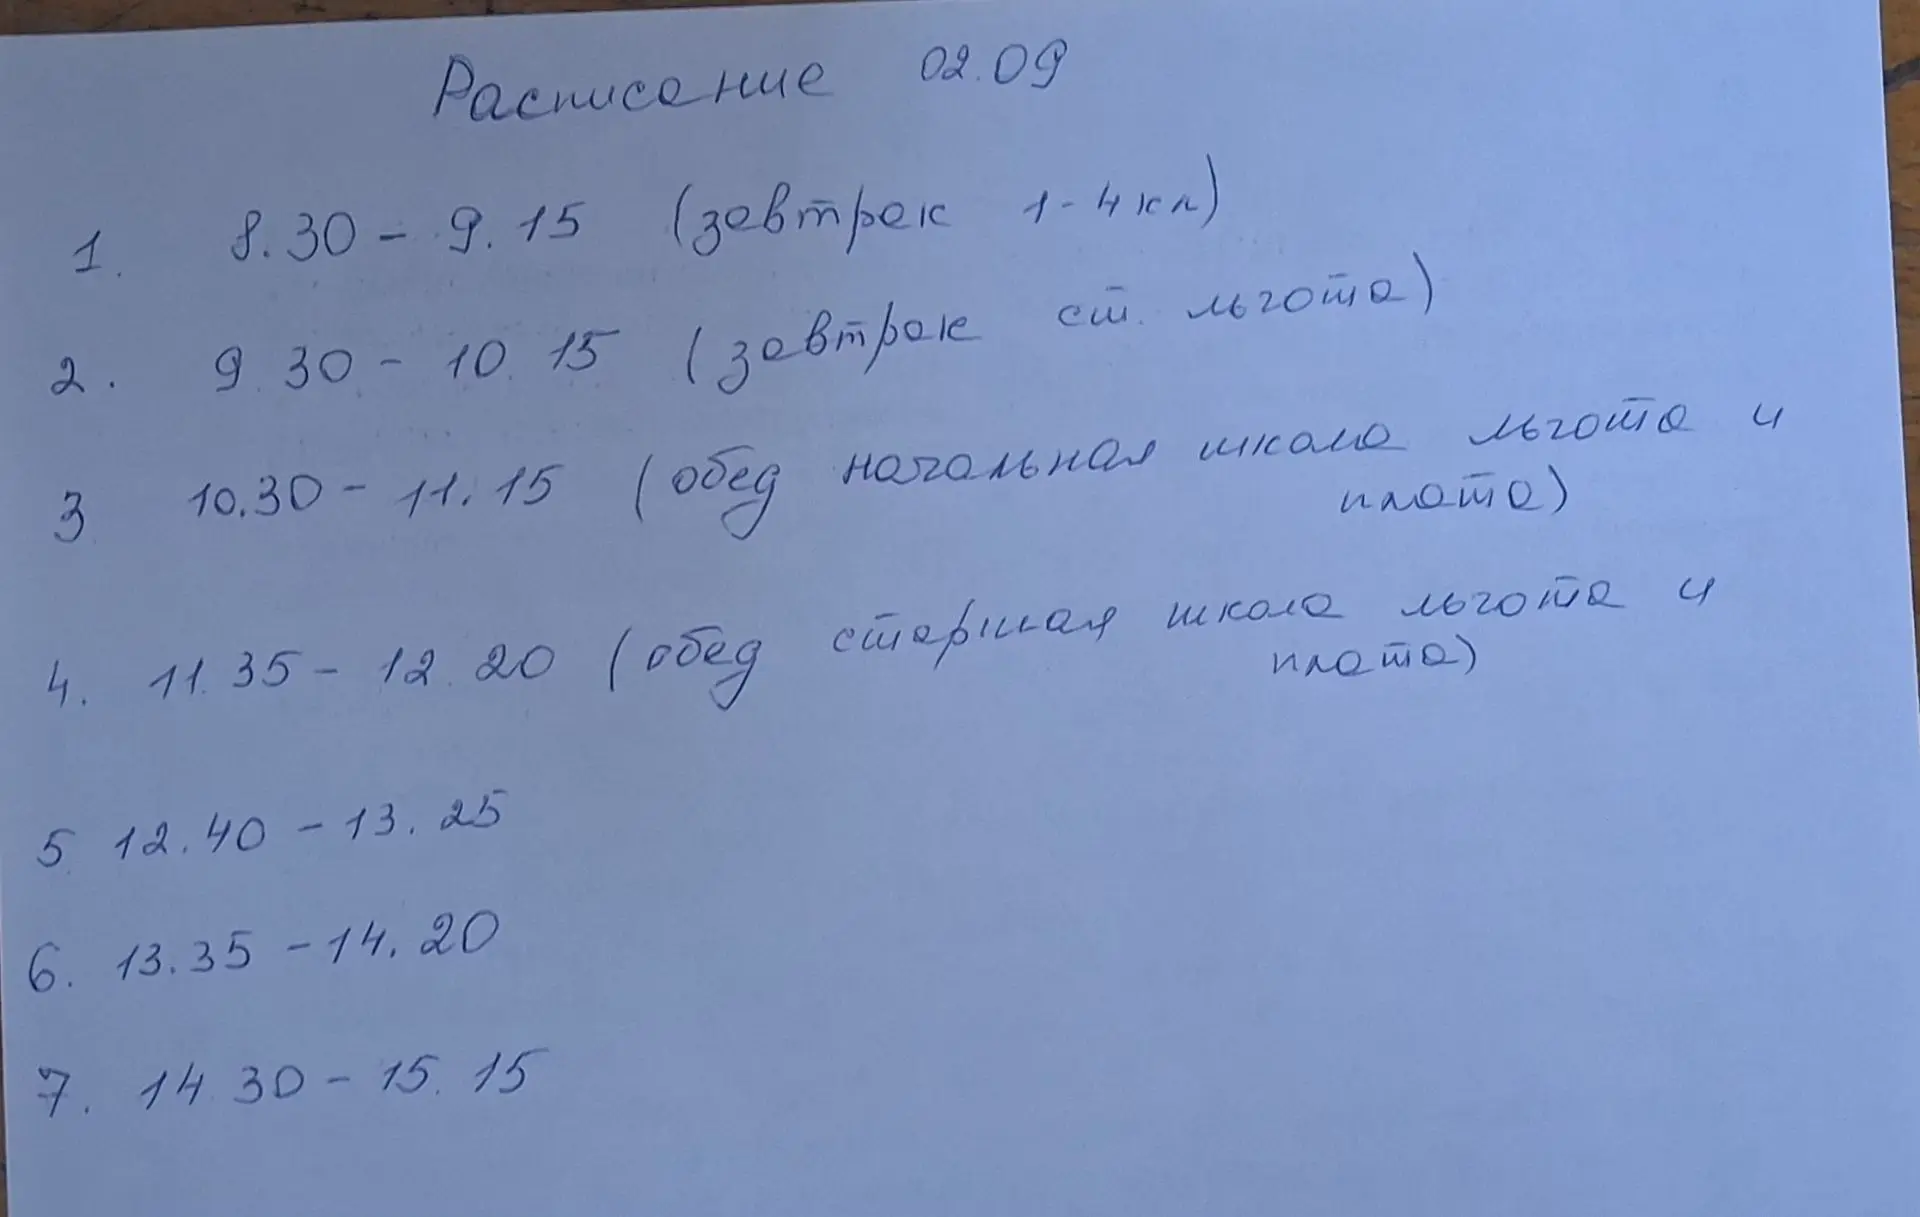 Расписание 02.09
1. 8.30 - 9.15 (завтрак 1-4 кл)
2. 9.30 - 10.15 (завтрак ст. льгота)
3 10.30 - 11.15 (обед начальная школа льгота и
плата)
4. 11.35 - 12.20 (обед старшая школа льгота и
плата)
5 12.40 - 13.25
6. 13.35 - 14.20
7. 14.30 - 15.15